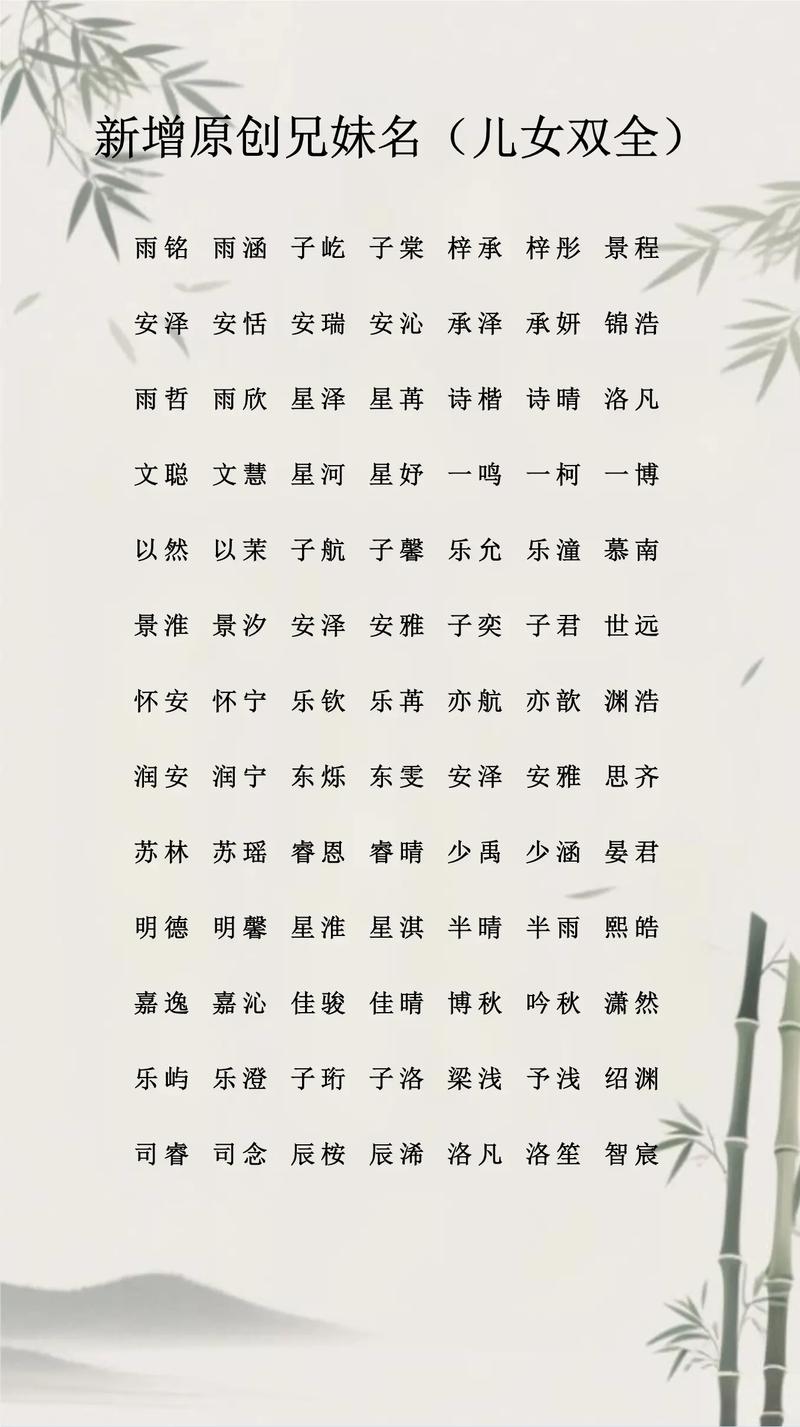 新增原创兄妹名（儿女双全）
雨铭 雨涵 子屹 子棠 梓承 梓彤 景程
安泽 安恬 安瑞 安沁 承泽 承妍 锦浩
雨哲 雨欣 星泽 星苒 诗楷 诗晴 洛凡
文聪 文慧 星河 星妤 一鸣 一柯 一博
以然 以茉 子航 子馨 乐允 乐潼 慕南
景淮 景汐 安泽 安雅 子奕 子君 世远
怀安 怀宁 乐钦 乐苒 亦航 亦歆 渊浩
润安 润宁 东烁 东雯 安泽 安雅 思齐
苏林 苏瑶 睿恩 睿晴 少禹 少涵 晏君
明德 明馨 星淮 星淇 半晴 半雨 熙皓
嘉逸 嘉沁 佳骏 佳晴 博秋 吟秋 潇然
乐屿 乐澄 子珩 子洛 梁浅 予浅 绍渊
司睿 司念 辰桉 辰浠 洛凡 洛笙 智宸